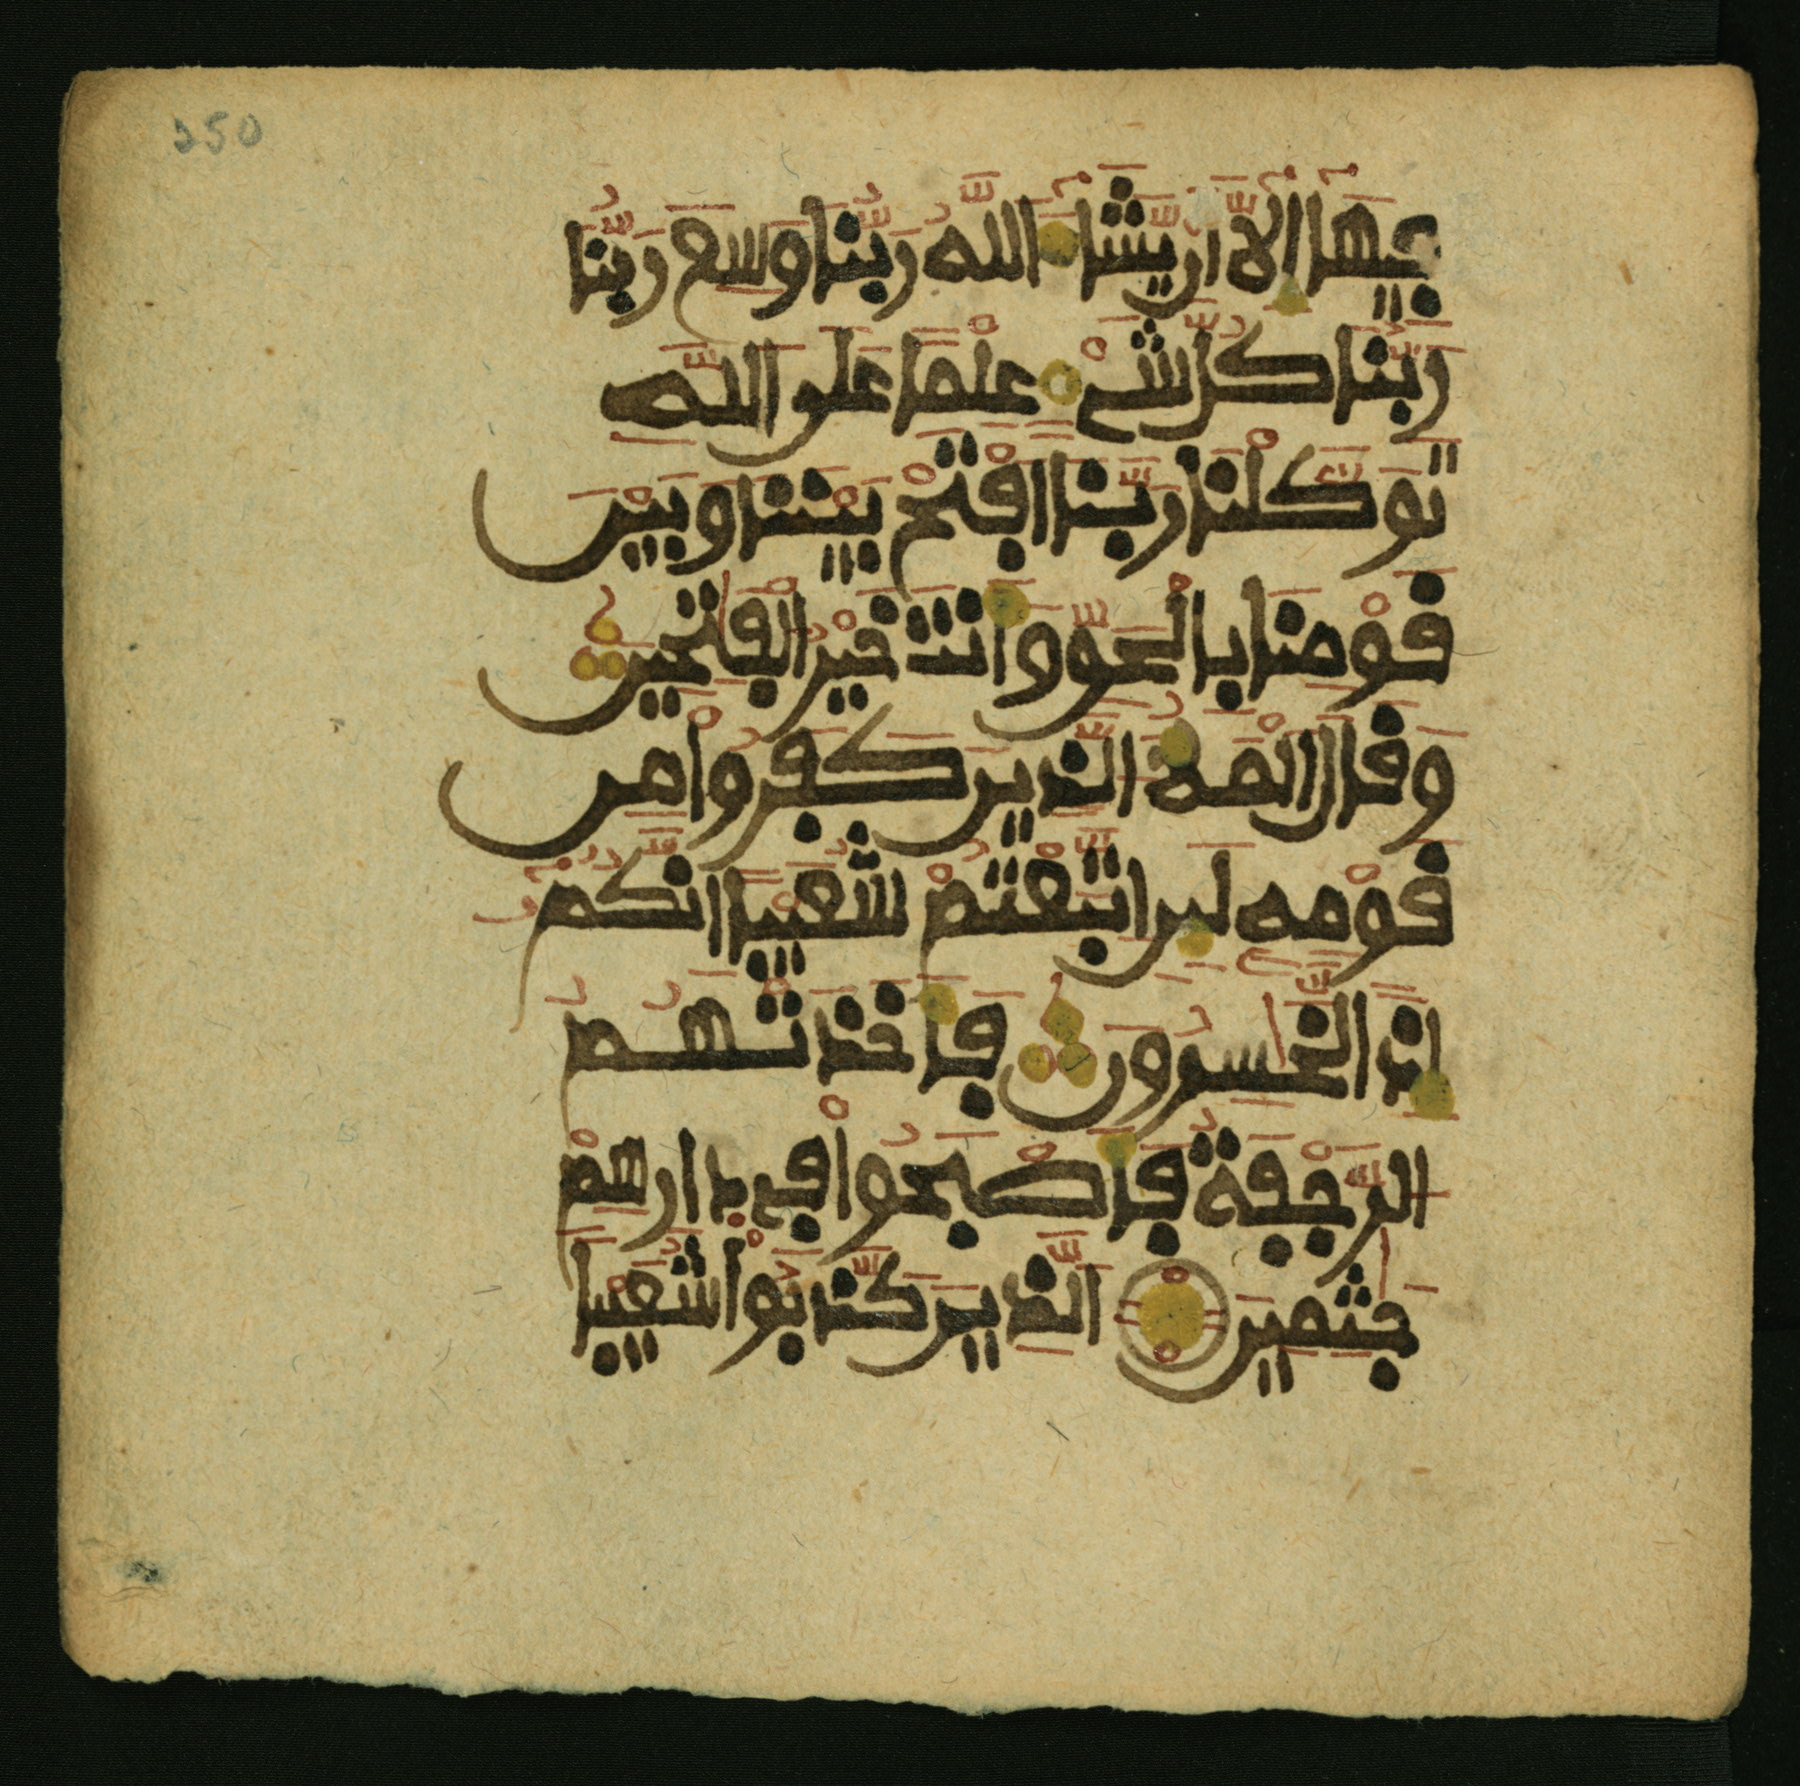 250
فيها إلا أن يشاء الله ربنا وسع ربنا
ربنا كل شيء علما على الله
توكلنا ربنا افتح بيننا وبين
قومنا بالحق وأنت خير الفتحين
وقال الملأ الذين كفروا من
قومه لين اتبعتم شعيبا إنكم
إذا لخسرون فأخذتهم
الرجفة فأصبحوا في دارهم
جثمين الذين كذبوا شعيبا